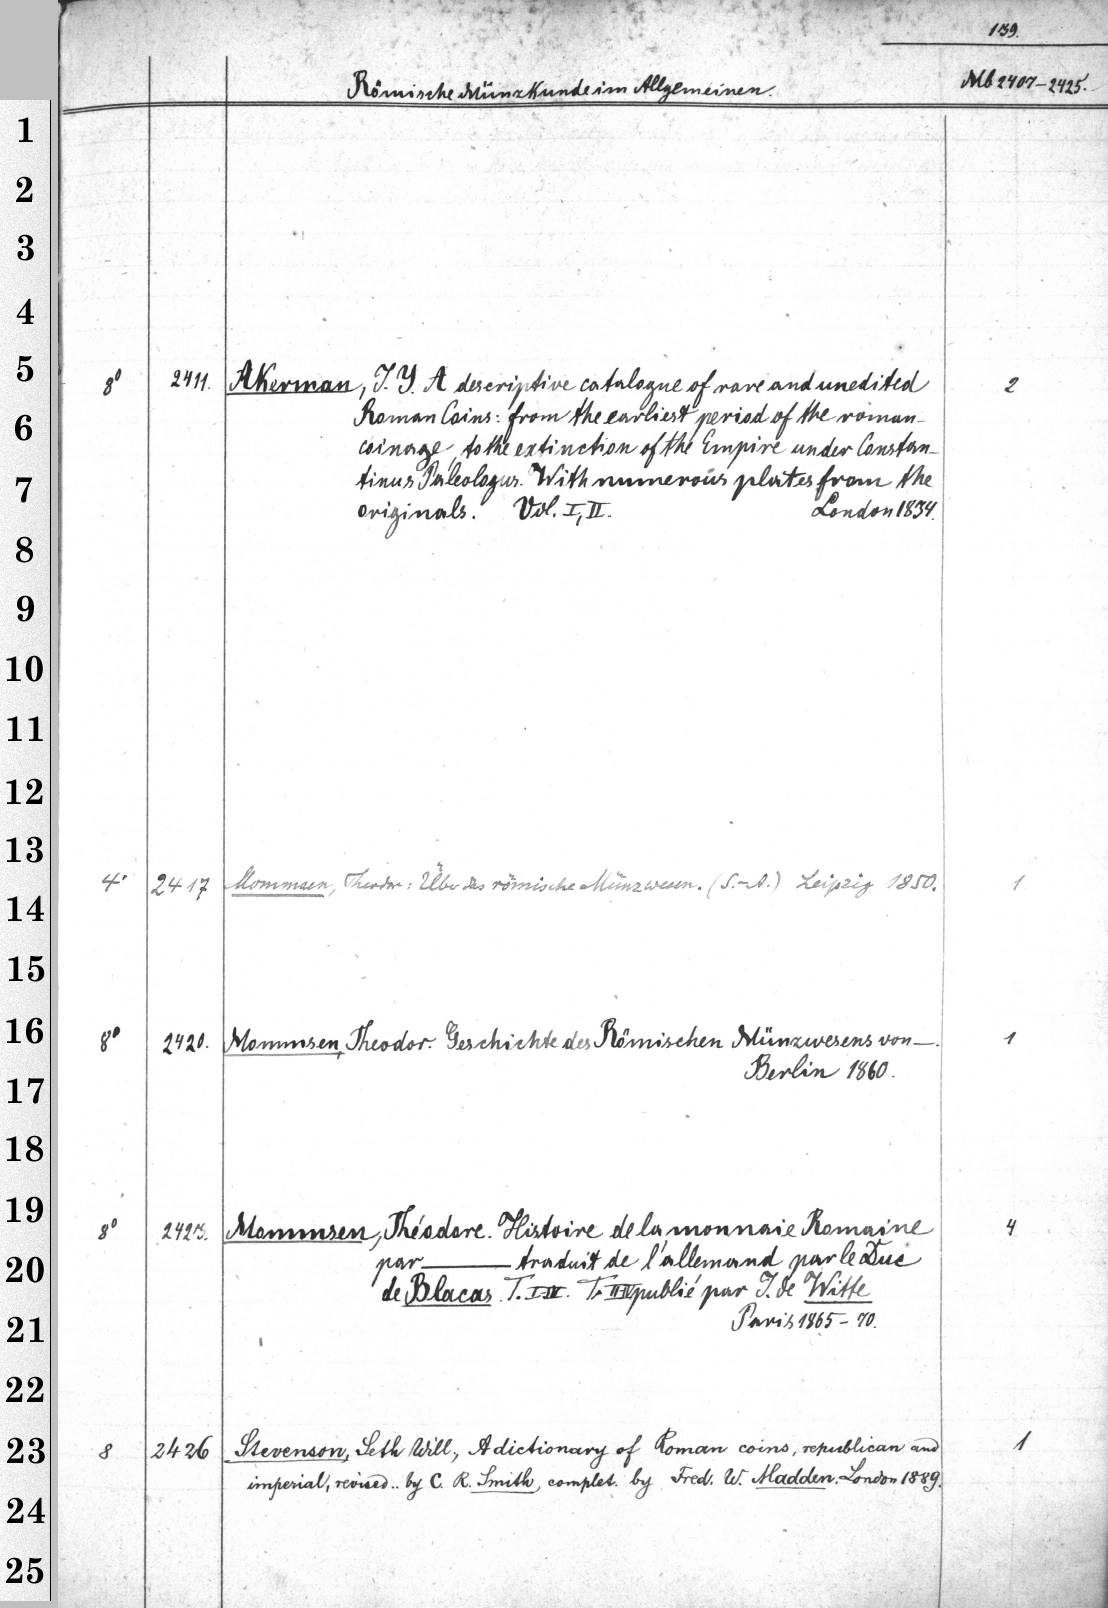 139.
Römische Münzkunde im Allgemeinen. Mb 2407-2425.
1
2
3
4
5
8° 2411. Akerman, J. Y. A descriptive catalogue of rare and unedited 2
6
Roman Coins: from the earliest period of the roman
coinage, to the extinction of the Empire under Constan-
7
tinus Paleologus. With numerous plates from the
originals. Vol. I, II. London 1834.
8
9
10
11
12
13
4° 2417 Mommsen, Theodor: Über das römische Münzwesen. (S.-A.) Leipzig 1850. 1
14
15
16
8° 2420. Mommsen, Theodor. Geschichte des Römischen Münzwesens von —. 1
Berlin 1860.
17
18
19
8° 2423. Mommsen, Théodore. Histoire de la monnaie Romaine 4
20
par ——— traduit de l'allemand par le Duc
de Blacas T. I-IV. T. III IV publié par J. de Witte
21
Paris 1865-70.
22
23
8 2426 Stevenson, Seth Will., A dictionary of Roman coins, republican and 1
imperial, revised.. by C. R. Smith, complet. by Fred. W. Madden. London 1889.
24
25